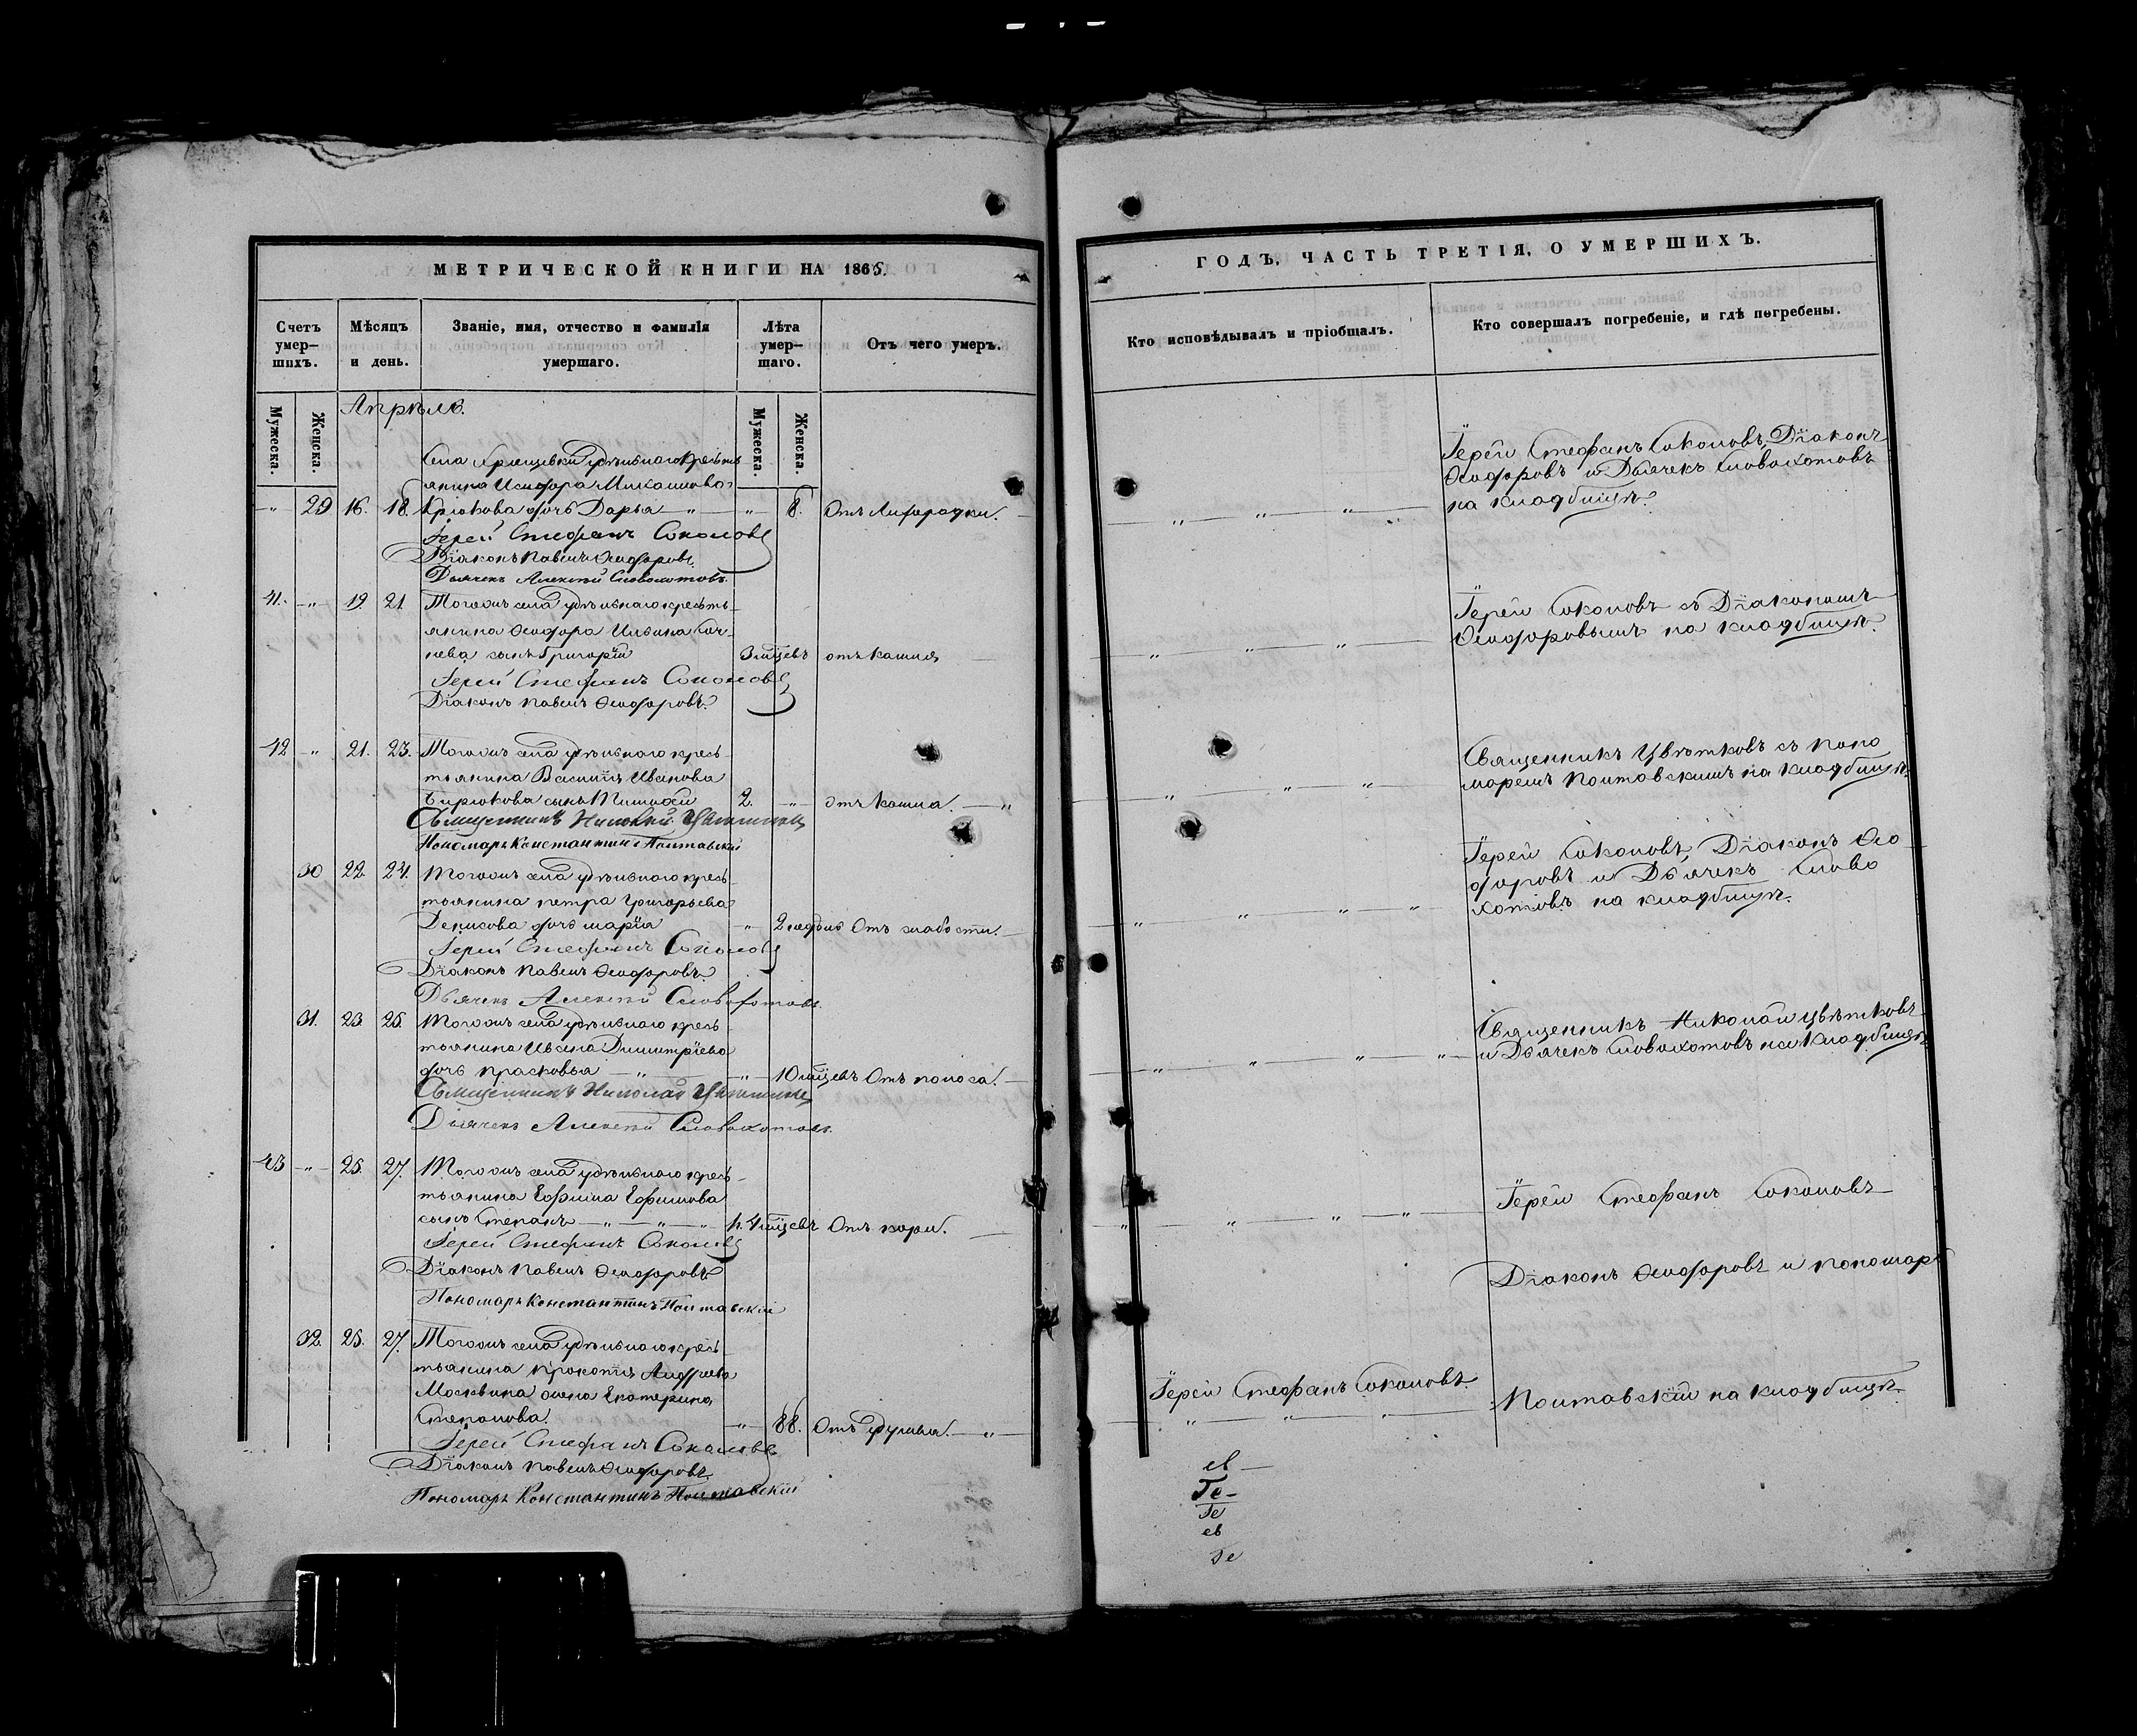 МЕТРИЧЕСКОЙ КНИГИ НА 1865.
Счетъ умер-шихъ.
Мѣсяцъ и день.
Званіе, имя, отчество и фамилія умершаго.
Лѣта умер-шаго.
Отъ чего умеръ.
Мужеска.
Женска.
Мужеска.
Женска.
Апрѣль.
Села Хрящевки удѣльнаго крестъ
янина Исидора
29 16. 18. Крюкова дочь Дарья 8. Отъ лихорадки.
Іерей Стефанъ Соколовъ
Діаконъ Павелъ Ѳеодоровъ
Дьячекъ Алексѣй Словохотовъ
41. 19 21. Тогожъ села удѣльнаго кресть-
янина Ѳеодора Ильина
сынъ Григорій 3 мцевъ отъ кашля
Іерей Стефанъ Соколовъ
Діаконъ Павелъ Ѳеодоровъ
42 21. 23. Тогожъ села удѣльнаго кресь-
тьянина Василія Иванова
Бирюкова сынъ 2. отъ кашля.
Священникъ Николай Цвѣтковъ
Пономарь Константинъ Полтавскій
30 22. 24. Тогожъ села удѣльнаго кресь-
тьянина Петра Григорьева
Денисова дочь Марія 2 недѣль Отъ слабости.
Іерей Стефанъ Соколовъ
Діаконъ Павелъ Ѳеодоровъ
Дьячекъ Алексѣй Словохотовъ
31. 23. 25. Тогожъ села удѣльнаго кресь-
тьянина Ивана Димитріева
дочь Прасковья 10 мцевъ Отъ поноса.
Священникъ Николай Цвѣтковъ
Дьячекъ Алексѣй Словохотовъ
43 25. 27. Тогожъ села удѣльнаго кресь-
тьянина Ефима Ефимова
сынъ Степанъ 4 мцевъ Отъ кори.
Іерей Стефанъ Соколовъ
Діаконъ Павелъ Ѳеодоровъ
Пономарь Константинъ Полтавскій
32. 25. 27. Тогожъ села удѣльнаго кресь-
тьянина Прокопія Андреева
Москвина жена Екатерина
Степанова. 88. Отъ удушья.
Іерей Стефанъ Соколовъ
Діаконъ Павелъ Ѳеодоровъ
Пономарь Константинъ Полтавскій
ГОДЪ, ЧАСТЬ ТРЕТІЯ, О УМЕРШИХЪ.
Кто исповѣдывалъ и пріобщалъ.
Кто совершалъ погребеніе, и гдѣ погребены.
Іерей Стефанъ Соколовъ, Діаконъ
Ѳеодоровъ и Дьячекъ Словохотовъ
на кладбищѣ.
Іерей Соколовъ съ Діакономъ
Ѳеодоровымъ на кладбищѣ.
Священникъ Цвѣтковъ съ Поно
маремъ Полтавскимъ на кладбищѣ.
Іерей Соколовъ, Діаконъ Ѳео
доровъ и Дьячекъ Слово
хотовъ на кладбищѣ.
Священникъ Николай Цвѣтковъ
и Дьячекъ Словохотовъ на кладбищѣ
Іерей Стефанъ Соколовъ
Діаконъ Ѳеодоровъ и пономарь
Іерей Стефанъ Соколовъ.
Полтавскій на кладбищѣ.